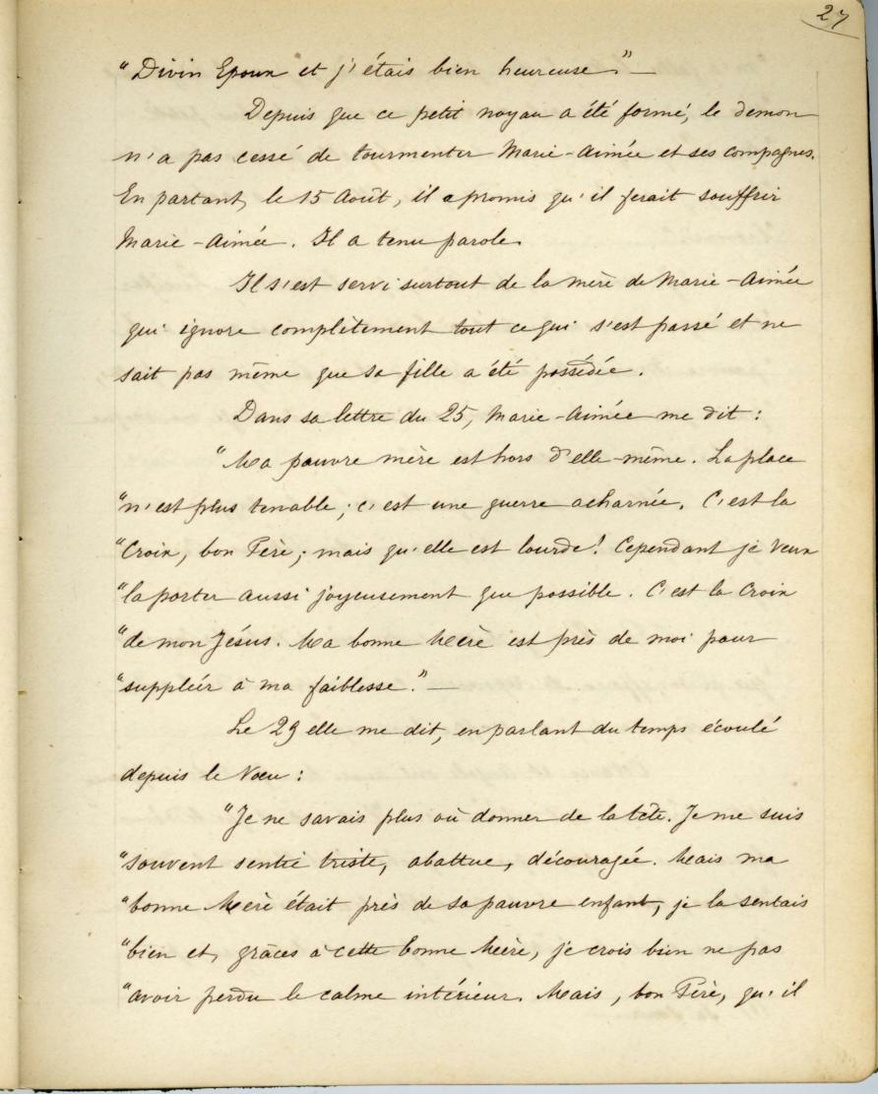 27
"Divin Epoux et j'étais bien heureuse." —
Depuis que ce petit noyau a été formé, le démon
n'a pas cessé de tourmenter Marie-Aimée et ses compagnes.
En partant, le 15 Août, il a promis qu'il ferait souffrir
Marie-Aimée. Il a tenu parole.
Il s'est servi surtout de la mère de Marie-Aimée
qui ignore complètement tout ce qui s'est passé et ne
sait pas même que sa fille a été possédée.
Dans sa lettre du 25, Marie-Aimée me dit :
"Ma pauvre mère est hors d'elle-même. La place
"n'est plus tenable ; c'est une guerre acharnée. C'est la
"Croix, bon Père ; mais qu'elle est lourde ! Cependant je veux
"la porter aussi joyeusement que possible. C'est la Croix
"de mon Jésus. Ma bonne Mère est près de moi pour
"suppléer à ma faiblesse." —
Le 29 elle me dit, en parlant du temps écoulé
depuis le Voeu :
"Je ne savais plus où donner de la tête. Je me suis
"souvent sentie triste, abattue, découragée. Mais ma
"bonne Mère était près de sa pauvre enfant, je la sentais
"bien et, grâces à cette bonne Mère, je crois bien ne pas
"avoir perdu le calme intérieur. Mais, bon Père, qu'il